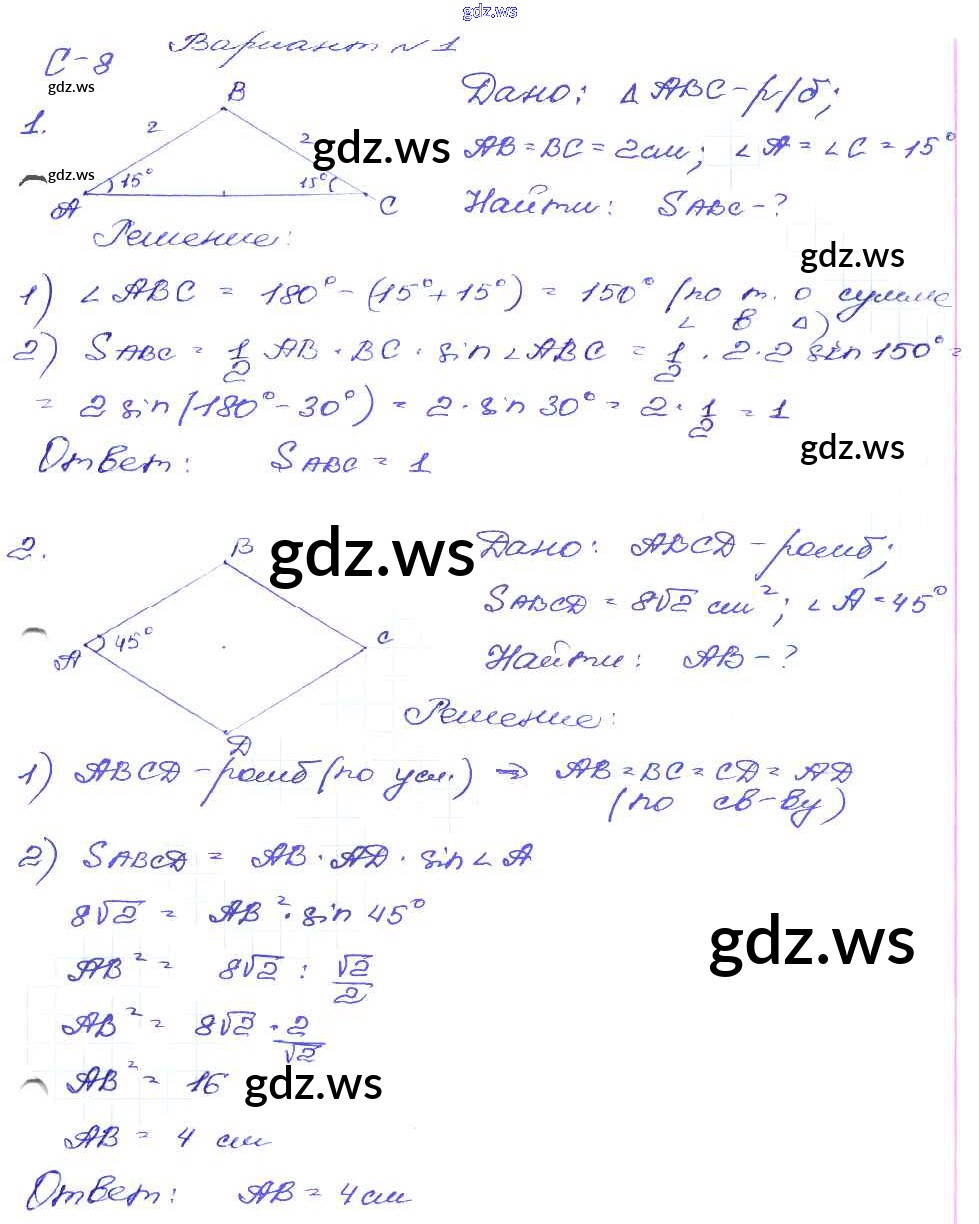 gdz.ws
Вариант N 1
С-8
gdz.ws
1.
B
2
2
gdz.ws
gdz.ws
15°
15°
A
C
Дано: Δ ABC - р/б;
AB = BC = 2 см; ∠A = ∠C = 15°
Найти: SABC - ?
Решение:
gdz.ws
1) ∠ABC = 180° - (15° + 15°) = 150° (по т. о сумме
∠ в Δ)
2) SABC = 1/2 AB · BC · sin ∠ABC = 1/2 · 2 · 2 sin 150° =
= 2 sin (180° - 30°) = 2 · sin 30° = 2 · 1/2 = 1
Ответ: SABC = 1
gdz.ws
2.
B
gdz.ws
A
45°
C
D
Дано: ABCD - ромб;
SABCD = 8√2 см²; ∠A = 45°
Найти: AB - ?
Решение:
1) ABCD - ромб (по усл.) ⇒ AB = BC = CD = AD
(по св-ву)
2) SABCD = AB · AD · sin ∠A
8√2 = AB² · sin 45°
gdz.ws
AB² = 8√2 : √2/2
AB² = 8√2 · 2/√2
AB² = 16
gdz.ws
AB = 4 см
Ответ: AB = 4 см